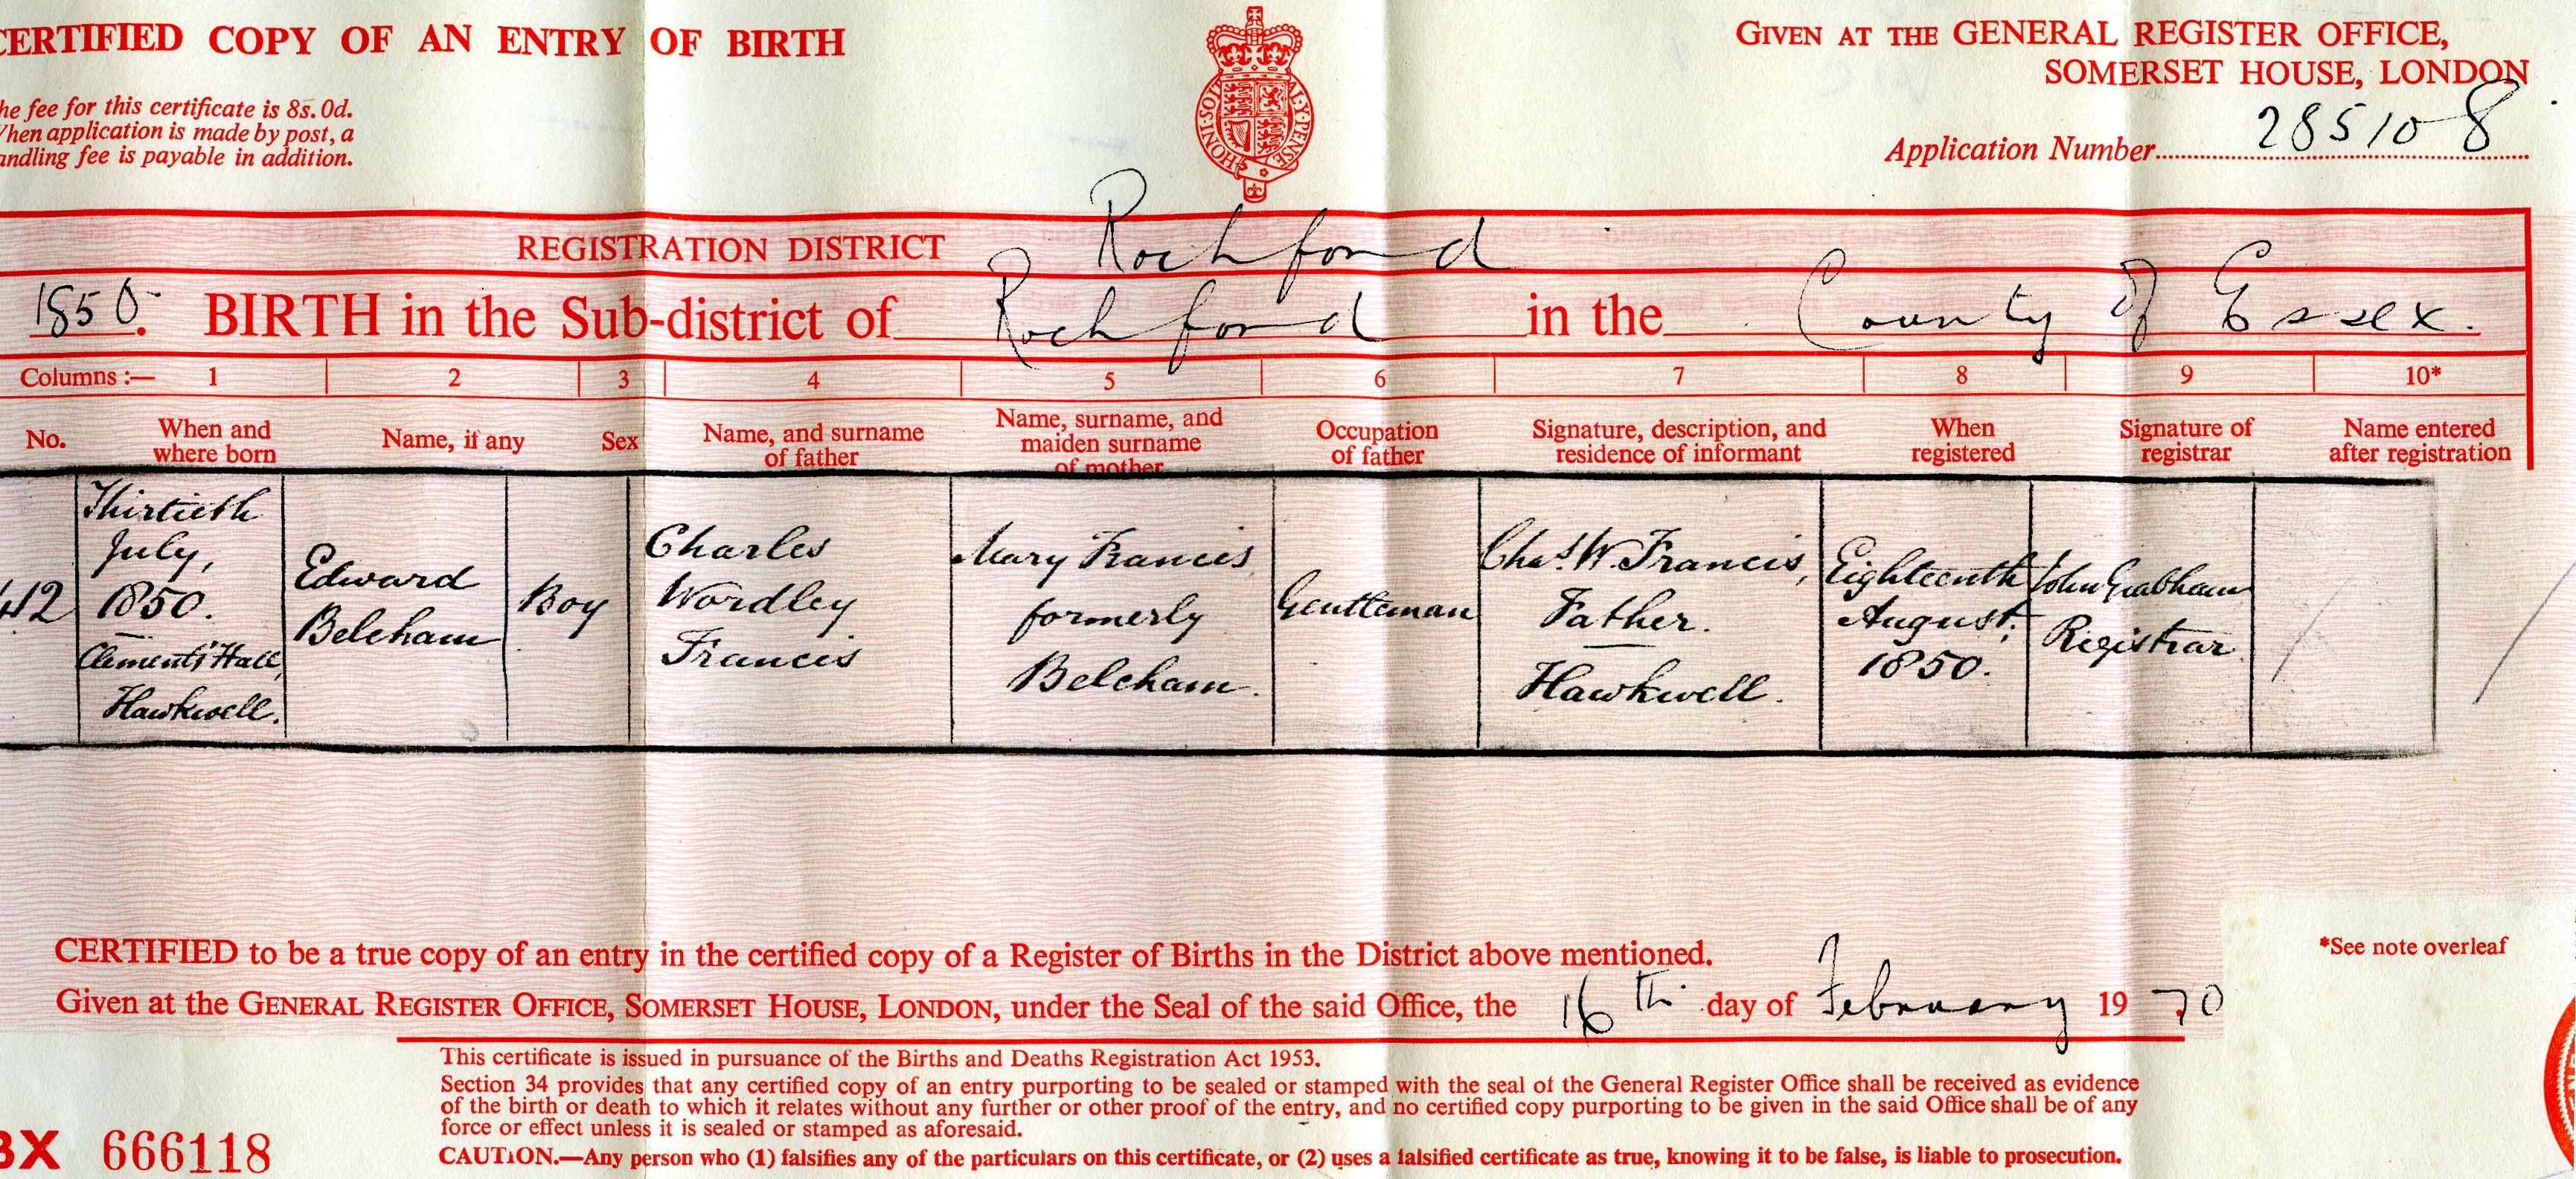 CERTIFIED COPY OF AN ENTRY OF BIRTH
GIVEN AT THE GENERAL REGISTER OFFICE,
SOMERSET HOUSE, LONDON
he fee for this certificate is 8s. 0d.
When application is made by post, a
andling fee is payable in addition.
HONI·SOIT AL·Y·PENSE
Application Number 285108
REGISTRATION DISTRICT Rochford
1850. BIRTH in the Sub-district of Rochford in the County of Essex.
Columns :— 1 2 3 4 5 6 7 8 9 10*
No.
When and
where born
Name, if any
Sex
Name, and surname
of father
Name, surname, and
maiden surname
of mother
Occupation
of father
Signature, description, and
residence of informant
When
registered
Signature of
registrar
Name entered
after registration
412
Thirtieth
July,
1850.
Clements' Hall,
Hawkwell.
Edward
Belcham
Boy
Charles
Wordley
Francis
Mary Francis
formerly
Belcham.
Gentleman
Chas. W. Francis,
Father.
Hawkwell.
Eighteenth
August,
1850.
John Grabham
Registrar.
CERTIFIED to be a true copy of an entry in the certified copy of a Register of Births in the District above mentioned.
*See note overleaf
Given at the GENERAL REGISTER OFFICE, SOMERSET HOUSE, LONDON, under the Seal of the said Office, the 16th day of February 1970
This certificate is issued in pursuance of the Births and Deaths Registration Act 1953.
Section 34 provides that any certified copy of an entry purporting to be sealed or stamped with the seal of the General Register Office shall be received as evidence
of the birth or death to which it relates without any further or other proof of the entry, and no certified copy purporting to be given in the said Office shall be of any
force or effect unless it is sealed or stamped as aforesaid.
BX 666118
CAUTION.—Any person who (1) falsifies any of the particulars on this certificate, or (2) uses a falsified certificate as true, knowing it to be false, is liable to prosecution.